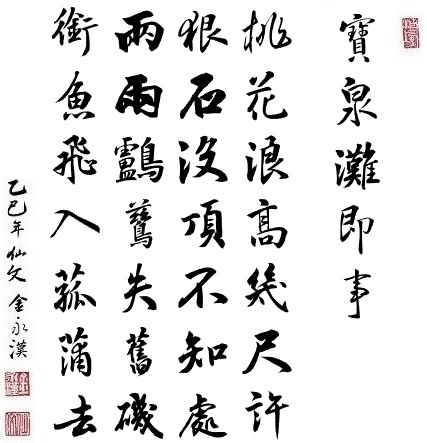 寶泉灘即事
桃花浪高幾尺許
狠石沒頂不知處
兩兩鸕鶿失舊磯
銜魚飛入菰蒲去
乙巳年 仙文 金永漢